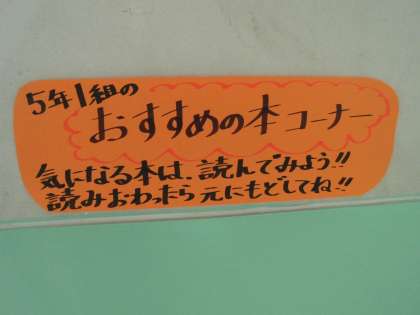 5年1組の
おすすめの本コーナー
気になる本は、読んでみよう!!
読みおわったら元にもどしてね!!